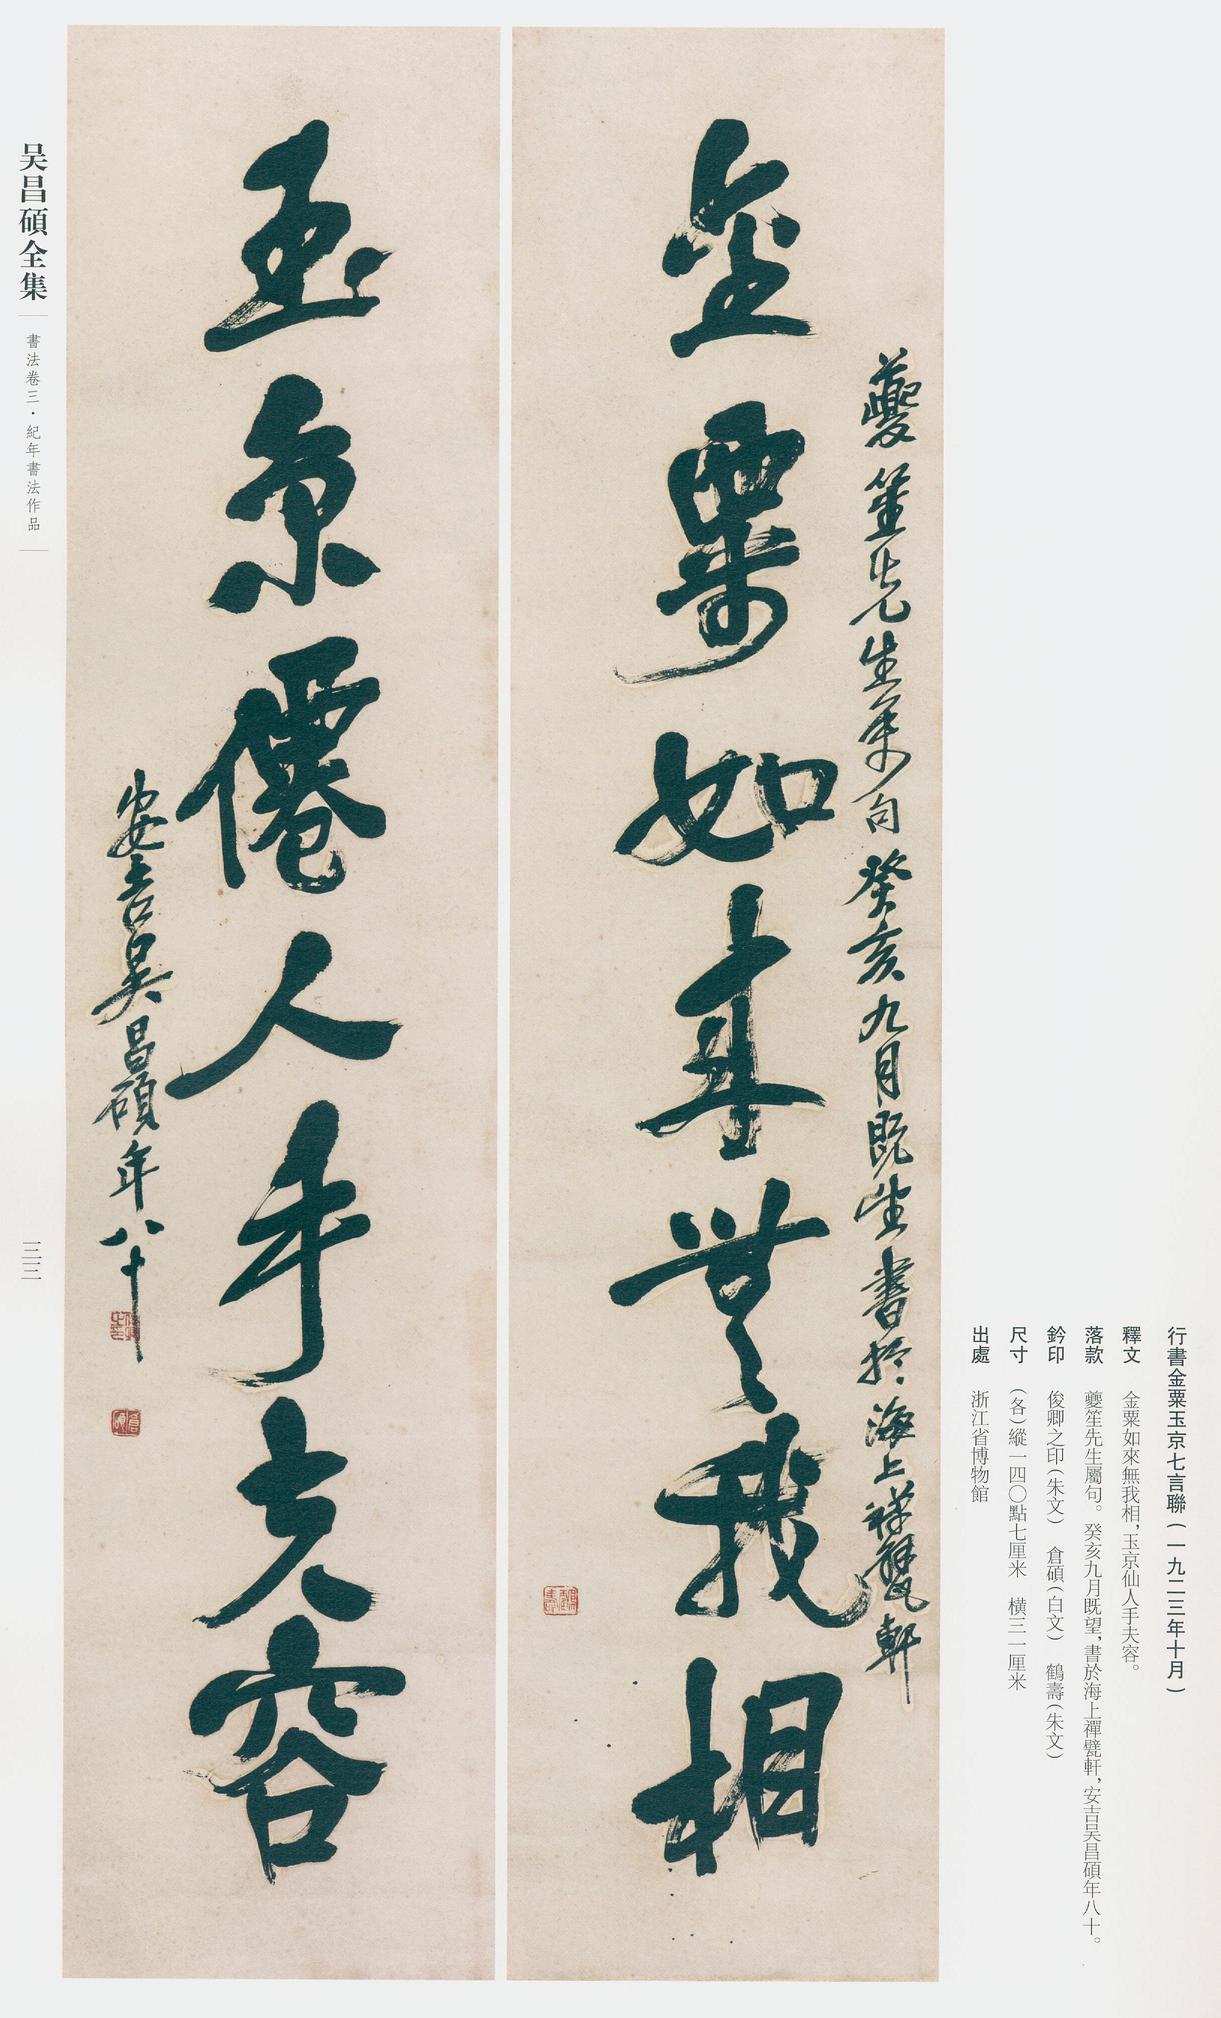 行書金粟玉京七言聯（一九二三年十月）
釋文 金粟如來無我相，玉京仙人手夫容。
落款 夔笙先生屬句。癸亥九月既望，書於海上禪甓軒，安吉吴昌碩年八十。
鈐印 俊卿之印（朱文） 倉碩（白文） 鶴壽（朱文）
尺寸 （各）縱一四〇點七厘米 橫三一厘米
出處 浙江省博物館
夔笙先生屬句癸亥九月既望書於海上禪甓軒
金粟如來無我相
鶴壽
玉京僊人手夫容
安吉吴昌碩年八十
俊卿之印
倉碩
吴昌碩全集
書法卷三·紀年書法作品
三三